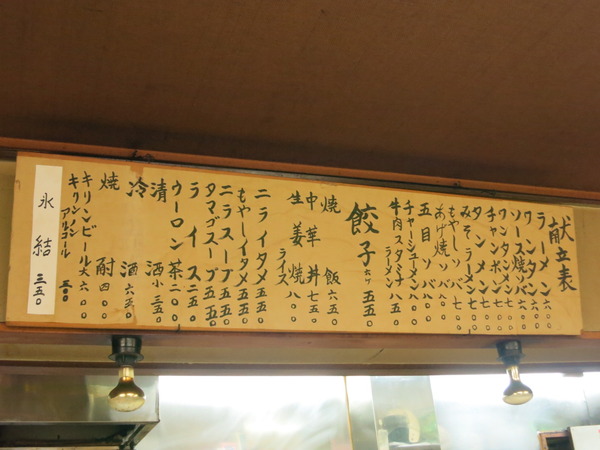 献立表
ラーメン 六〇〇
ワンタン 六〇〇
ソース焼ソバ 六〇〇
ワンタンメン 七〇〇
チャンポン 七〇〇
タンメン 七〇〇
みそラーメン 七〇〇
もやしソバ 七〇〇
あげ焼ソバ 八〇〇
五目ソバ 八〇〇
チャーシューメン 八〇〇
牛肉スタミナラーメン 八五〇
餃子 六ケ 五五〇
焼飯 六五〇
中華丼 七五〇
生姜焼ライス 八〇〇
ニライタメ 五五〇
もやしイタメ 五五〇
ニラスープ 五五〇
タマゴスープ 五五〇
ライス 二五〇
ウーロン茶 二〇〇
清酒 小 三五〇
冷酒 六五〇
焼酎 四〇〇
キリンビール 大 六〇〇
キリンノンアルコール 三〇〇
氷結 三五〇